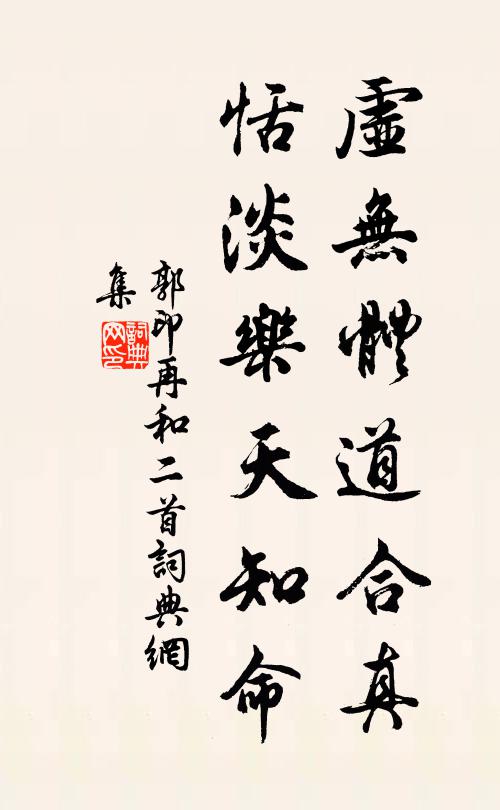 虛無體道合真
恬淡樂天知命
郭印再和二首詞典網
集
詞典网印